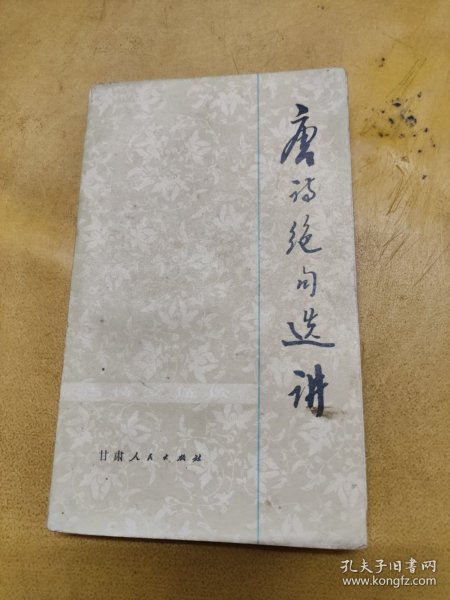 唐诗绝句选讲
甘肃人民出版社
孔夫子旧书网
www.kongfz.com